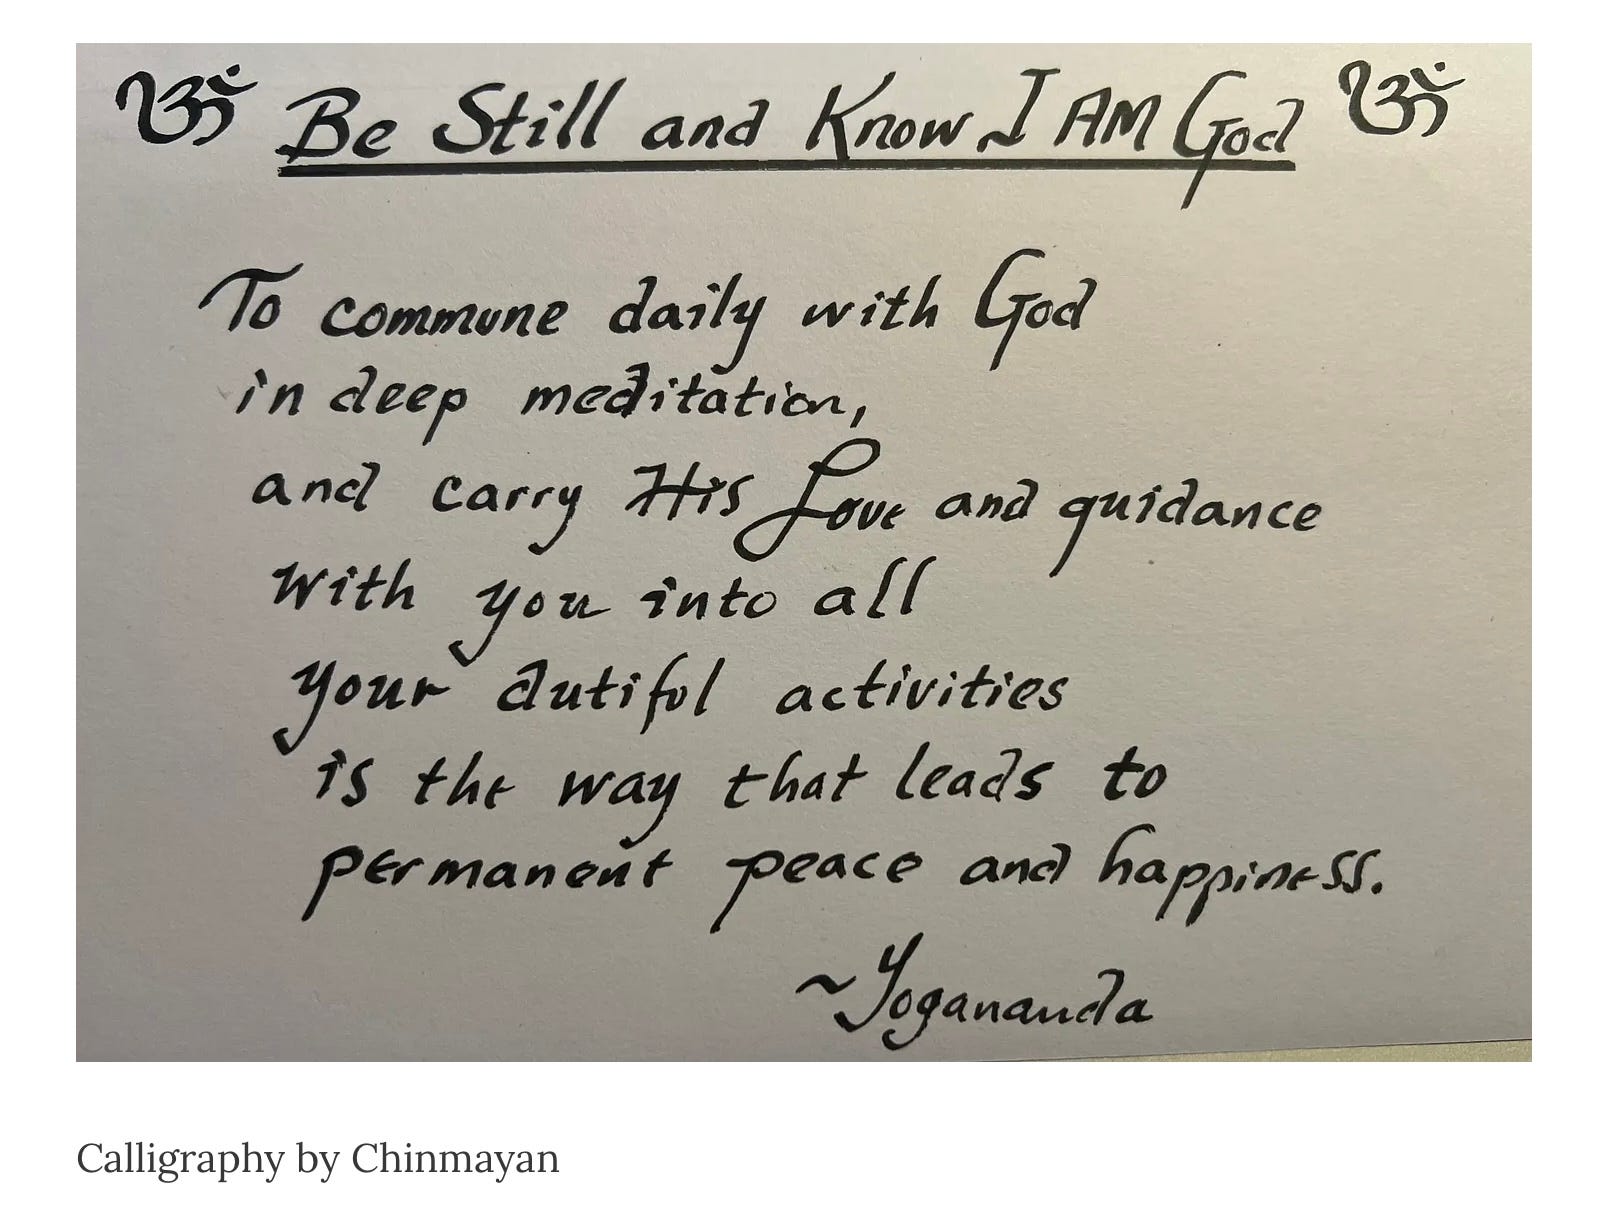 ॐ Be Still and Know I AM God ॐ
To commune daily with God
in deep meditation,
and carry His Love and guidance
with you into all
your dutiful activities
is the way that leads to
permanent peace and happiness.
~Yogananda
Calligraphy by Chinmayan